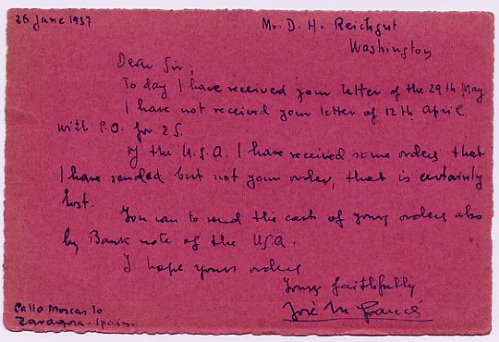 26 June 1937
Mr. D. H. Reichgut
Washington
Dear Sir;
To day I have received your letter of the 29th May
I have not received your letter of 12th April
with P.O. for 2S.
Of the U.S.A. I have received some orders that
I have sended but not your order, that is certainly
lost.
You can to send the cash of yours orders also
by Bank note of the USA.
I hope yours orders
Yours faithfully
José M Francés
Zaragoza. Spain.